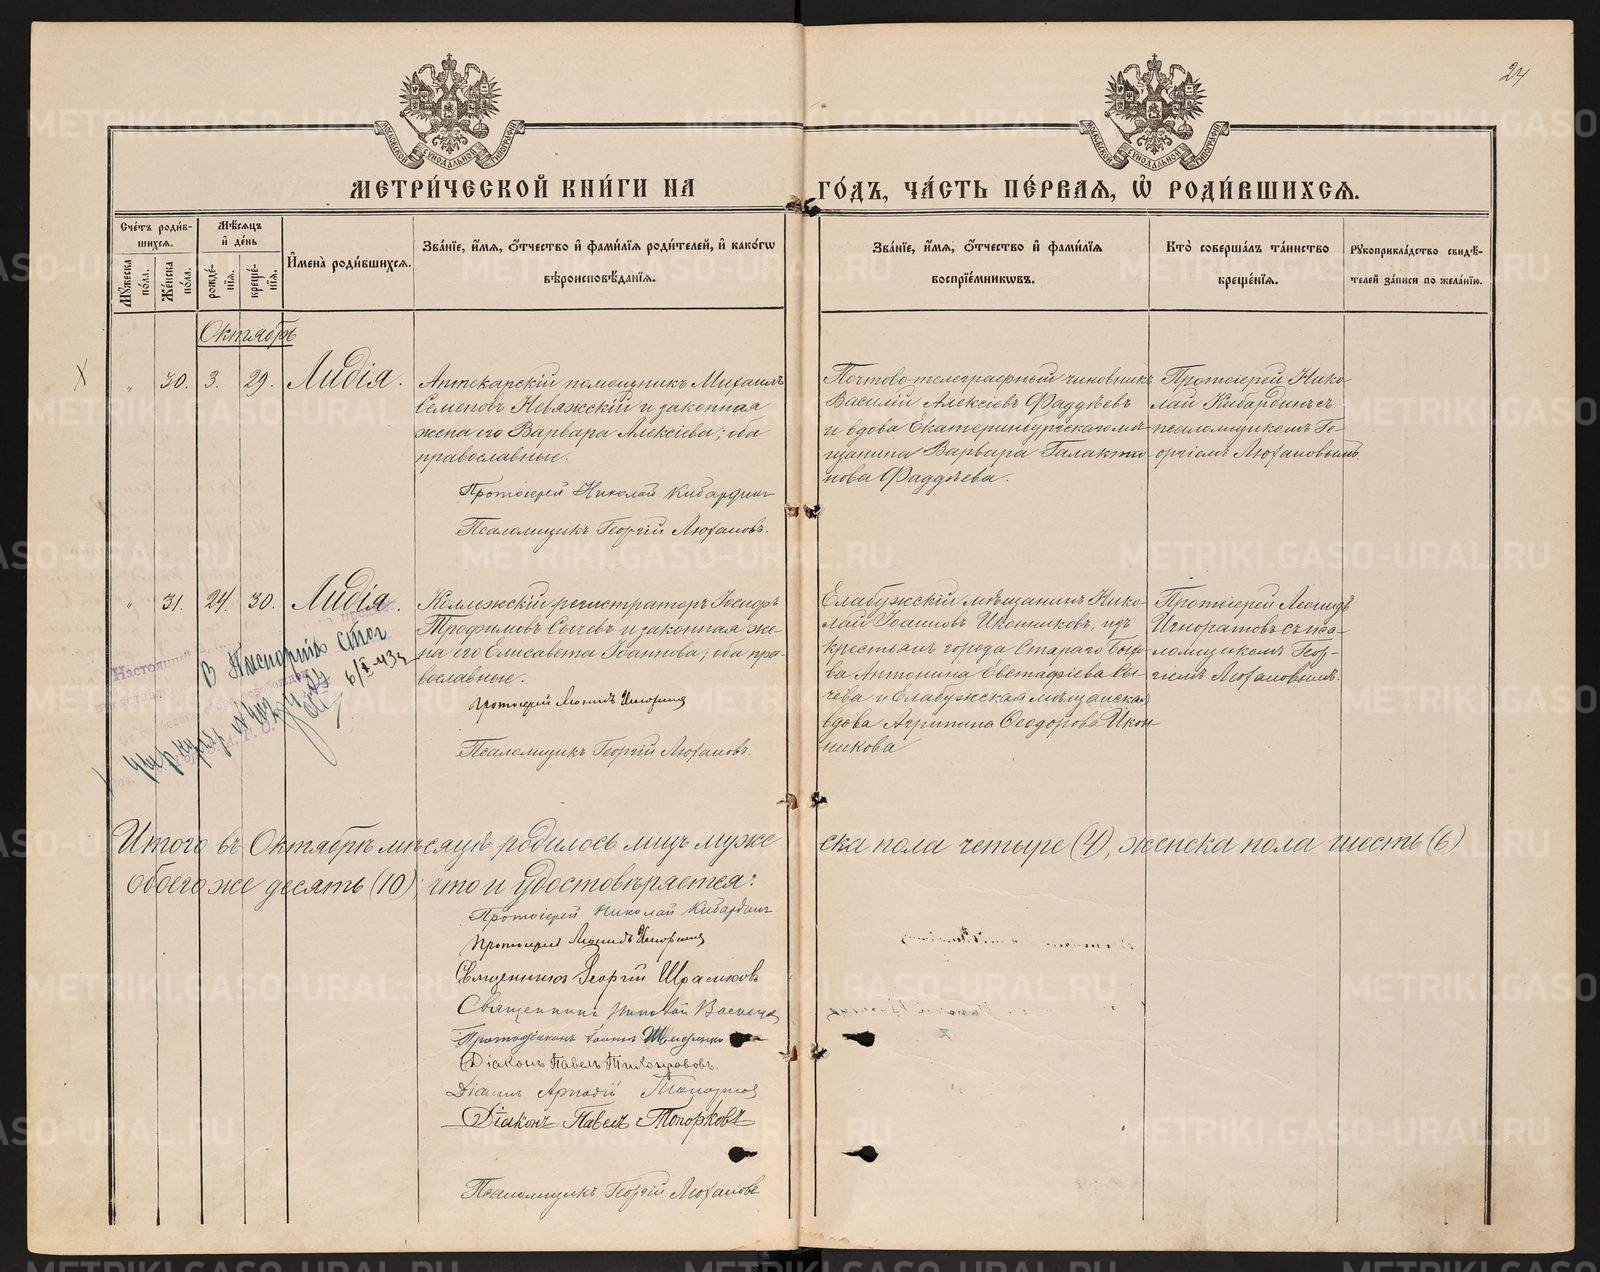 24
МОСКОВСКОЙ СѴНОДАЛЬНОЙ ТИПОГРАФІИ
МОСКОВСКОЙ СѴНОДАЛЬНОЙ ТИПОГРАФІИ
МЕТРИ́ЧЕСКОЙ КНИ́ГИ НА ГО́ДЪ, ЧА́СТЬ ПЕ́РВАЯ, Ѡ҆ РОДИ́ВШИХСЯ.
Сче́тъ роди́в-
шихся.
Мѣ́сяцъ
и҆ де́нь
Мꙋ́жеска по́ла.
Же́нска по́ла.
рожде́-
нїя.
креще́-
нїя.
И҆мена̀ роди́вшихся.
Зва́нїе, и҆́мя, ѻ҆́тчество и҆ фами́лїя роди́телей, и҆ како́гѡ
вѣроисповѣ́данїя.
Зва́нїе, и҆́мя, ѻ҆́тчество и҆ фами́лїя
воспрїе́мникѡвъ.
Кто̀ соверша́лъ та́инство
креще́нїя.
Рꙋкоприкла́дство свидѣ́-
телей за́писи по жела́нїю.
Октябрь
" 30. 3. 29. Лидія.
Аптекарскій помощникъ Михаилъ
Семеновъ Невяжскій и законная
жена его Варвара Алексіева; оба
православные.
Протоіерей Николай Кибардинъ
Псаломщикъ Георгій Люхановъ.
Почтово-телеграфный чиновникъ
Василій Алексіевъ Фаддѣевъ
и вдова Екатеринбургскаго мѣ-
щанина Варвара Галактіо
нова Фаддѣева.
Протоіерей Нико
лай Кибардинъ съ
псаломщикомъ Ге-
оргіемъ Люхановымъ.
" 31. 24. 30. Лидія.
Коллежскій регистраторъ Іосифъ
Трофимовъ Сычевъ и законная же-
на его Елисавета Іоаннова; оба пра-
вославные.
Протоіерей Леонидъ Игноратовъ
Псаломщикъ Георгій Люхановъ.
Елабужскій мѣщанинъ Нико-
лай Іоанновъ Иконниковъ, изъ
крестьянъ города Стараго Быхо
ва Антонина Евстафіева Сы-
чева и Елабужская мѣщанская
вдова Агрипина Ѳеодорова Икон
никова
Протоіерей Леонидъ
Игноратовъ съ пса-
ломщикомъ Геор-
гіемъ Люхановымъ.
Настоящій
В Паспортн. стол
6/X-43 г.
Итого въ Октябрѣ мѣсяцѣ родилось лицъ муже ска пола четыре (4), женска пола шесть (6)
обоего же десять (10); что и удостовѣряется:
Протоіерей Николай Кибардинъ
Протоіерей Леонидъ Игноратовъ
Священникъ Георгій
Священникъ
Протодіаконъ
Діаконъ Павелъ Тихонравовъ.
Діаконъ Аркадій
Діаконъ Павелъ Топорковъ
Псаломщикъ Георгій Люхановъ
METRIKI.GASO-URAL.RU